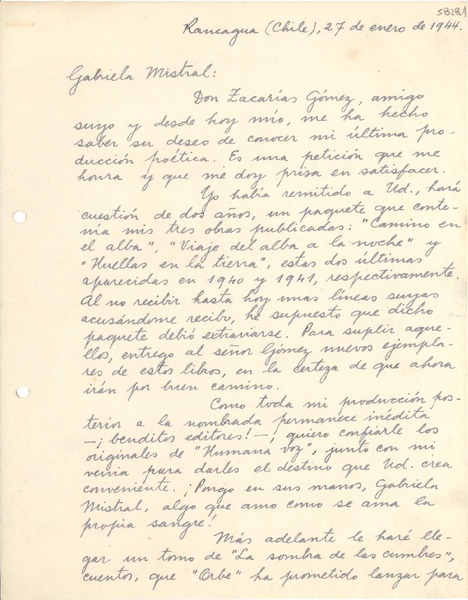 58281
Rancagua (Chile), 27 de enero de 1944.
Gabriela Mistral:
Don Zacarías Gómez, amigo
suyo y desde hoy mío, me ha hecho
saber su deseo de conocer mi última pro-
ducción poética. Es una petición que me
honra y que me doy prisa en satisfacer.
Yo había remitido a Ud., hará
cuestión de dos años, un paquete que conte-
nía mis tres obras publicadas: "Camino en
el alba", "Viaje del alba a la noche" y
"Huellas en la tierra", estas dos últimas
aparecidas en 1940 y 1941, respectivamente.
Al no recibir hasta hoy unas líneas suyas
acusándome recibo, he supuesto que dicho
paquete debió extraviarse. Para suplir aque-
llos, entrego al señor Gómez nuevos ejempla-
res de estos libros, en la certeza de que ahora
irán por buen camino.
Como toda mi producción pos-
terior a la nombrada permanece inédita
—¡benditos editores!—, quiero confiarle los
originales de "Humana voz", junto con mi
venia para darles el destino que Ud. crea
conveniente. ¡Pongo en sus manos, Gabriela
Mistral, algo que amo como se ama la
propia sangre!
Más adelante le haré lle-
gar un tomo de "La sombra de las cumbres",
cuentos, que "Orbe" ha prometido lanzar para